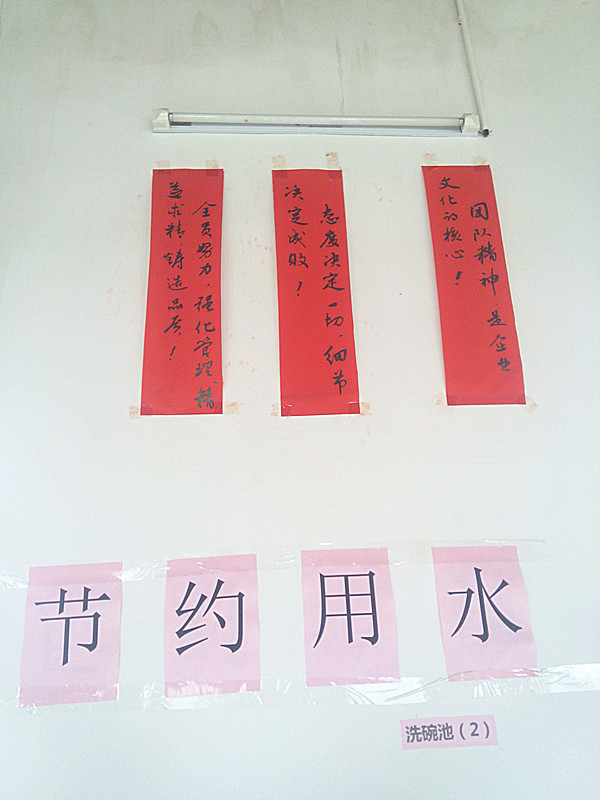 团队精神，是企业
文化的核心！
态度决定一切，细节
决定成败！
全员努力，强化管理，精
益求精，铸造品质！
节约用水
洗碗池（2）